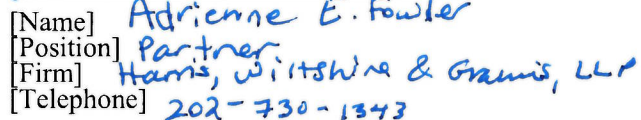 [Name] Adrienne E. Fowler
[Position] Partner
[Firm] Harris, Wiltshire & Grannis, LLP
[Telephone] 202-730-1343